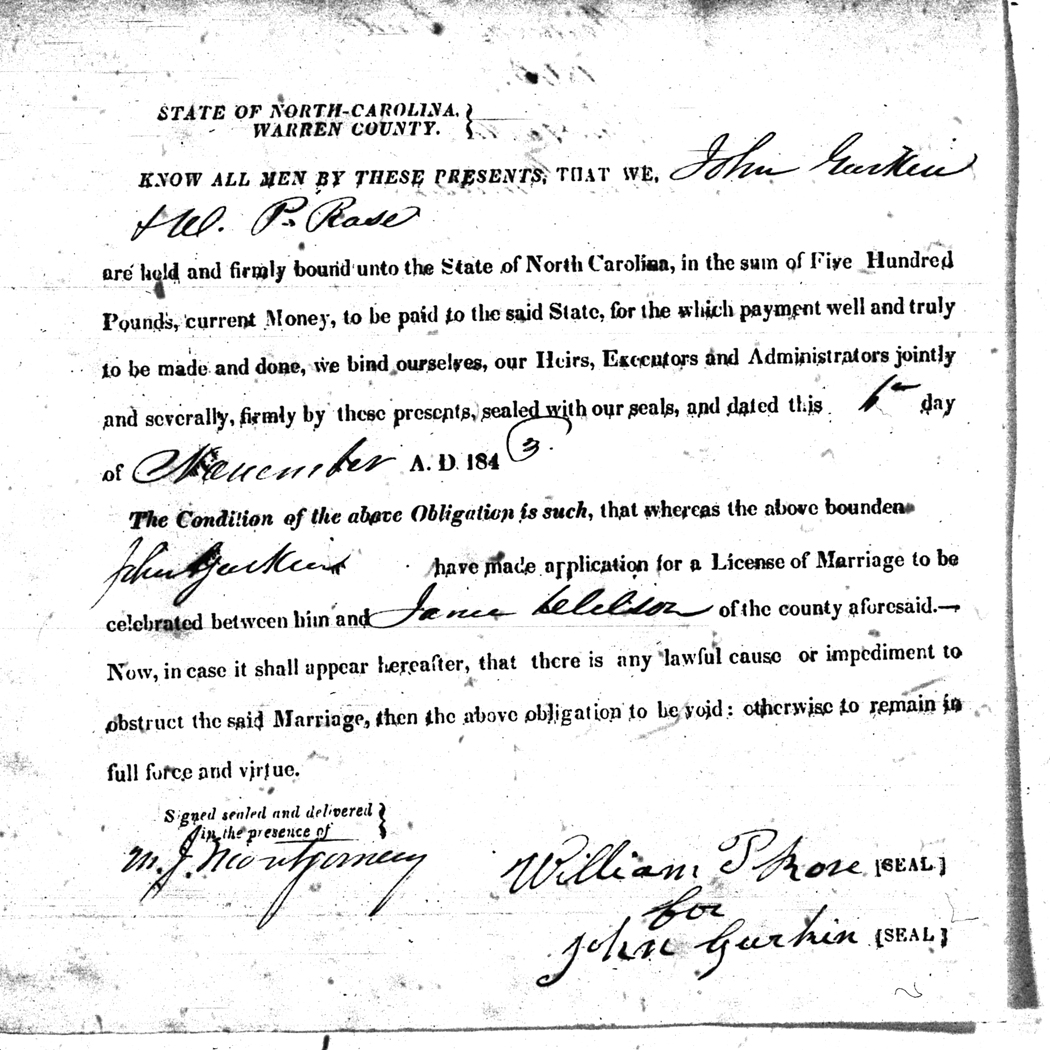 STATE OF NORTH-CAROLINA,
WARREN COUNTY.
KNOW ALL MEN BY THESE PRESENTS, THAT WE, John Gurkin
& W. P. Rose
are held and firmly bound unto the State of North Carolina, in the sum of Five Hundred
Pounds, current Money, to be paid to the said State, for the which payment well and truly
to be made and done, we bind ourselves, our Heirs, Executors and Administrators jointly
and severally, firmly by these presents, sealed with our seals, and dated this day
of November A. D. 184 3.
The Condition of the above Obligation is such, that whereas the above bounden
John Gurkin have made application for a License of Marriage to be
celebrated between him and of the county aforesaid.—
Now, in case it shall appear hereafter, that there is any lawful cause or impediment to
obstruct the said Marriage, then the above obligation to be void: otherwise to remain in
full force and virtue.
Signed sealed and delivered
in the presence of
M. J. Montgomery
William P Rose {SEAL}
for
John Gurkin {SEAL}